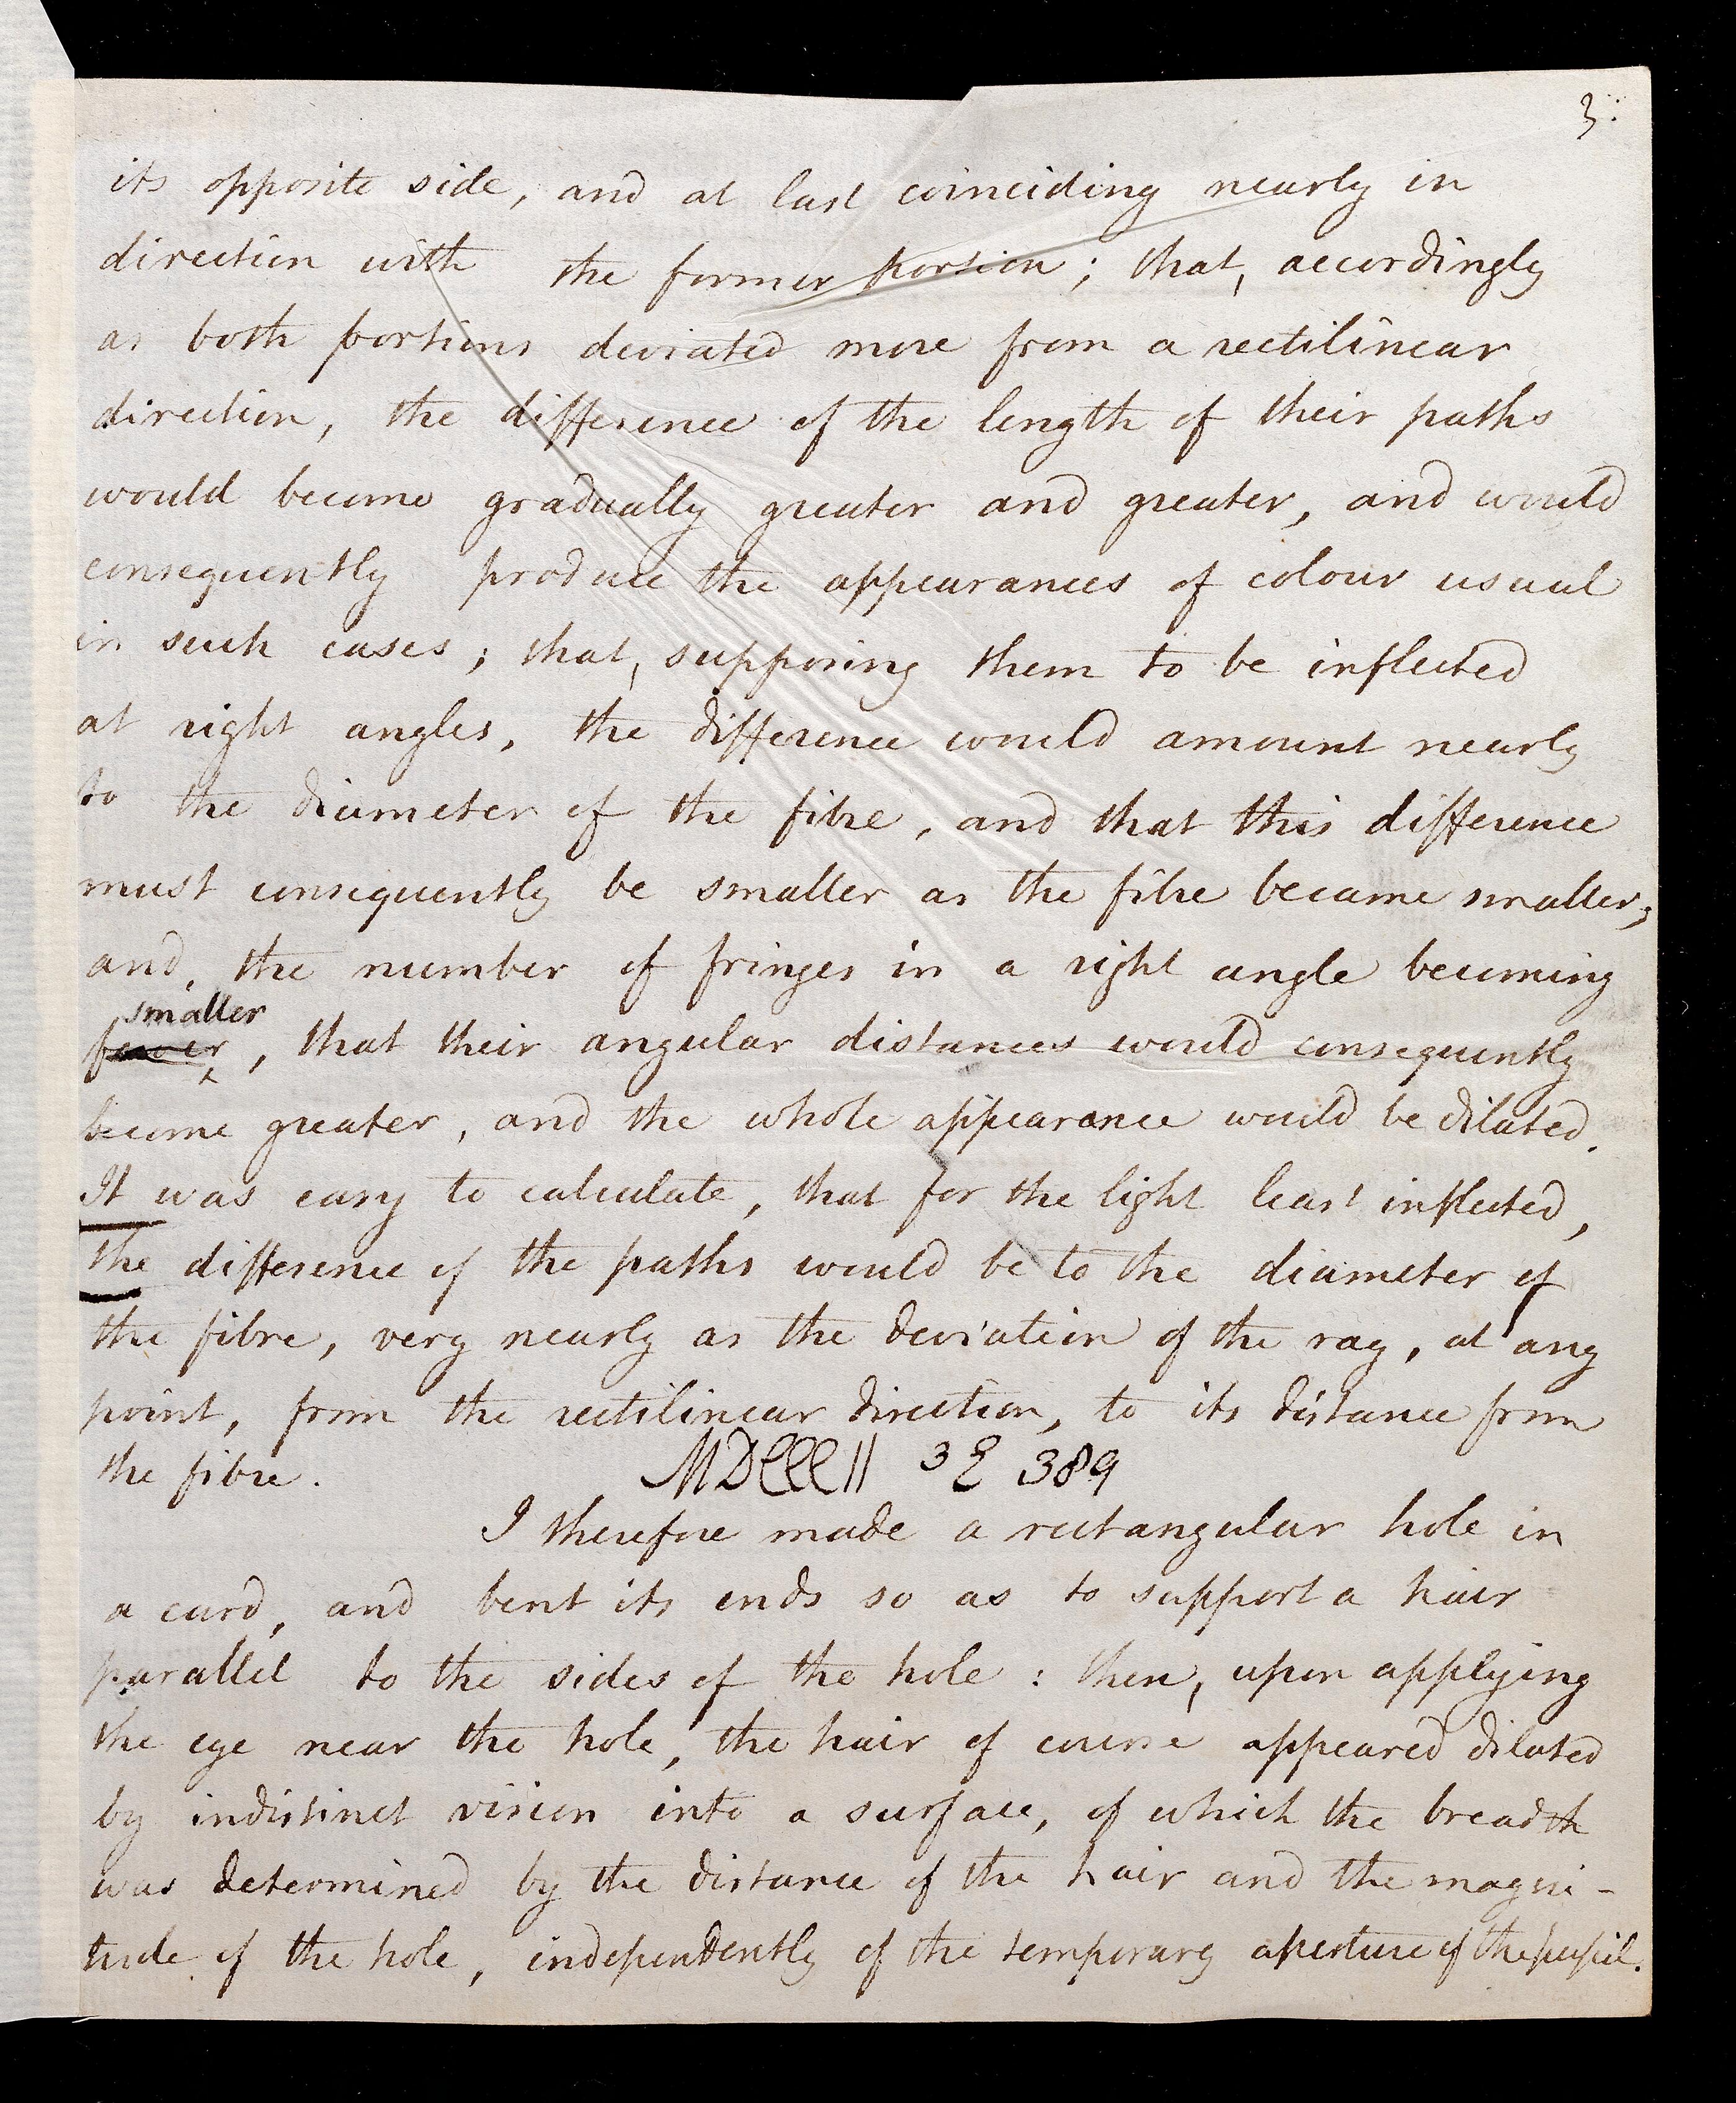 3.
its opposite side, and at last coinciding nearly in
direction with the former portion; that, accordingly
as both portions deviated more from a rectilinear
direction, the difference of the length of their paths
would become gradually greater and greater, and would
consequently produce the appearances of colour usual
in such cases; that, supposing them to be inflected
at right angles, the difference would amount nearly
to the diameter of the fibre, and that this difference
must consequently be smaller as the fibre became smaller;
and, the number of fringes in a right angle becoming
smaller
fewer, that their angular distances would consequently
become greater, and the whole appearance would be dilated.
It was easy to calculate, that for the light least inflected,
the difference of the paths would be to the diameter of
the fibre, very nearly as the deviation of the ray, at any
point, from the rectilinear direction, to its distance from
the fibre. MDCCCII 3E 389
I therefore made a rectangular hole in
a card, and bent its ends so as to support a hair
parallel to the sides of the hole: then, upon applying
the eye near the hole, the hair of course appeared dilated
by indistinct vision into a surface, of which the breadth
was determined by the distance of the hair and the magni-
tude of the hole, independently of the temporary aperture of the pupil.